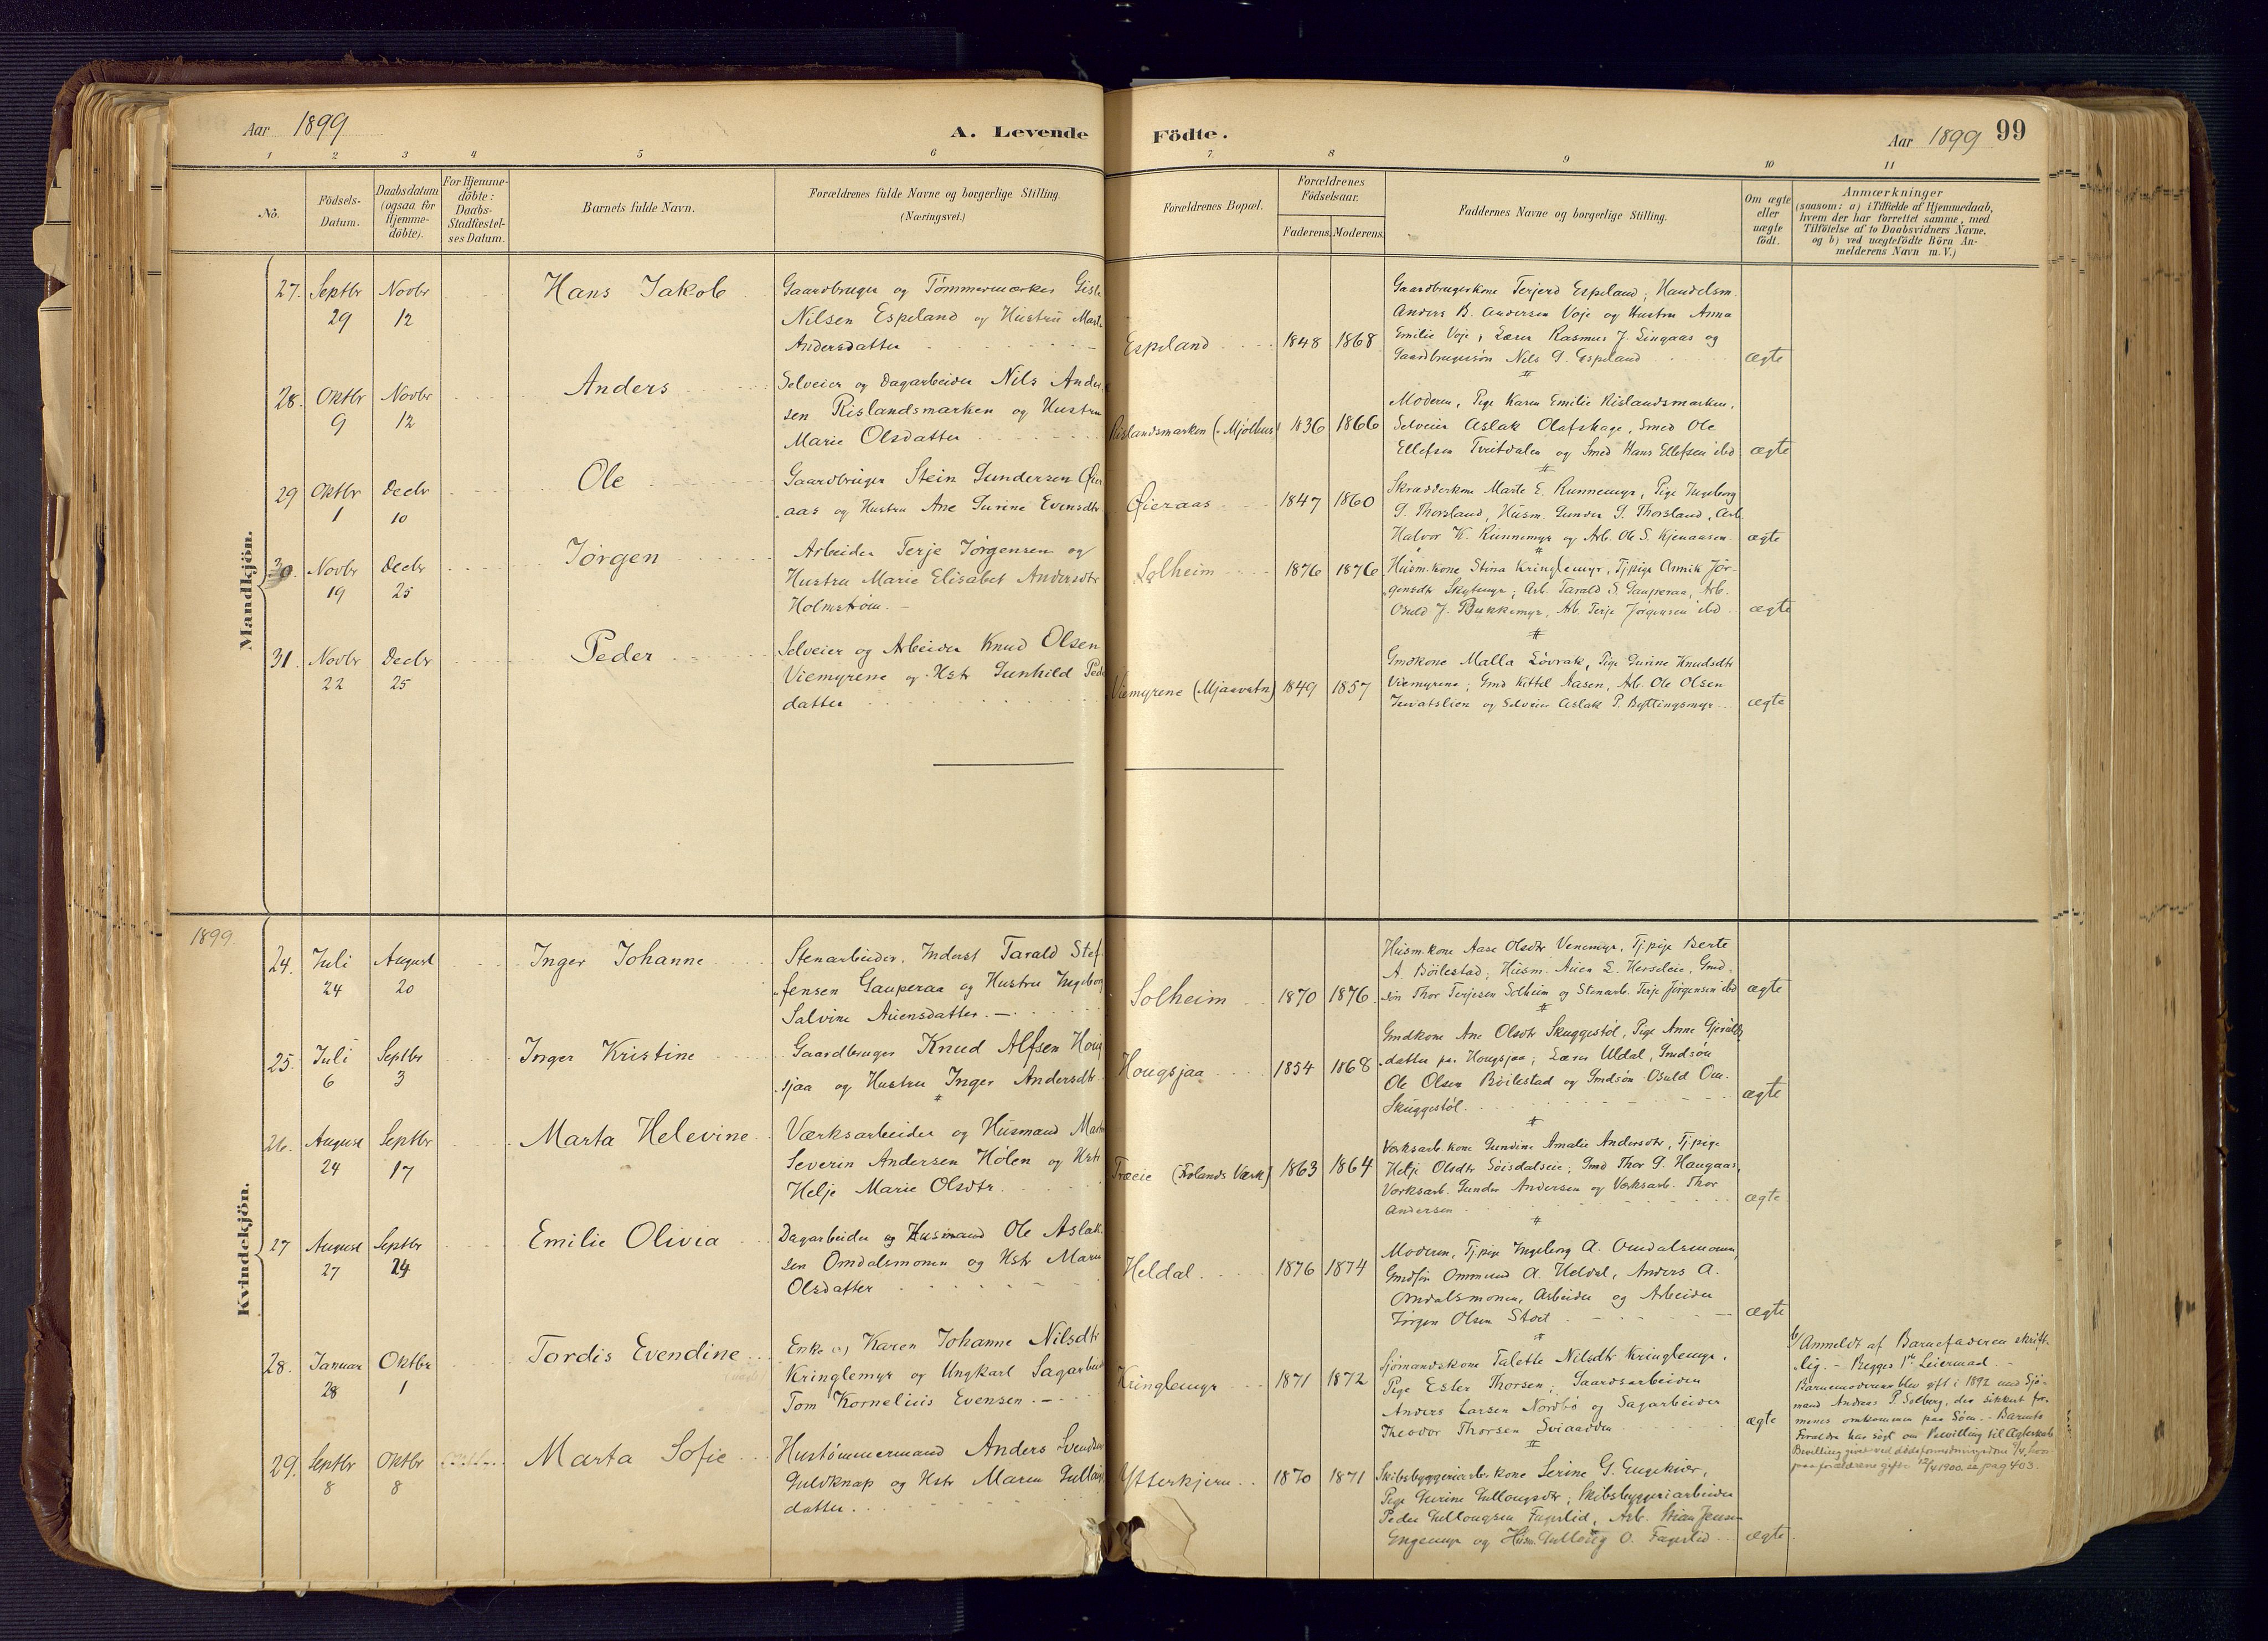 Aar 1899
A. Levende
Födte.
Aar 1899
99
1 2 3 4 5 6 7 8 9 10 11
No.
Födsels-
Datum.
Daabsdatum
(ogsaa for
Hjemme-
döbte).
For Hjemme-
döbte:
Daabs-
Stadfæstel-
ses Datum.
Barnets fulde Navn.
Forældrenes fulde Navne og borgerlige Stilling.
(Næringsvei.)
Forældrenes Bopæl.
Forældrenes
Födselsaar.
Faderens. Moderens.
Faddernes Navne og borgerlige Stilling.
Om ægte
eller
uægte
födt.
Anmærkninger
(saasom: a) i Tilfælde af Hjemmedaab,
hvem der har forrettet samme, med
Tilföielse af to Daabsvidners Navne,
og b) ved uægtefödte Börn An-
melderens Navn m. V.)
Mandkjön.
27. Septbr 29 Novbr 12 Hans Jakob
Gaardbruger og Tømmermærker Gisle
Nilsen Espeland og Hustru Marte
Andersdatter
Espeland 1848 1868
Gaardbrugerkone Terjerd Espeland; Handelsm.
Anders B. Andersen Voje og Hustru Anna
Emilie Voje; Lærer Rasmus J. Lingaas og
Gaardbrugersøn Nils G. Espeland
ægte
28. Oktbr 9 Novbr 12 Anders
Selveier og Dagarbeider Nils Ander-
sen Rislandsmarken og Hustru
Marie Olsdatter
Rislandsmarken (Mjølhus) 1836 1866
Moderen, Pige Karen Emilie Rislandsmarken,
Selveier Aslak Olafshage, Smed Ole
Ellefsen Tveitdalen og Smed Hans Ellefsen ibd
ægte
29 Oktbr 1 Decbr 10 Ole
Gaardbruger Stein Gundersen Øier-
aas og Hustru Ane Gurine Evensdtr
Øieraas 1847 1860
Skrædderkone Marte E. Runnemyr, Pige Ingeborg
G. Thorsland, Husm. Gunder G. Thorsland, Arb.
Halvor K. Runnemyr og Arb. Ole S. Kjenaasen
ægte
30. Novbr 19 Decbr 25 Jørgen
Arbeider Terje Jørgensen og
Hustru Marie Elisabet Andersdtr
Holmstrøm.
Solheim 1876 1876
Husm.kone Stina Kringlemyr, Tj.pige Annik Jör-
gensdtr Skytemyr; Arb. Tarald S. Gauperaa, Arb.
Osuld J. Bunkemyr, Arb. Terje Jørgensen ibd
ægte
31. Novbr 22 Decbr 25 Peder
Selveier og Arbeider Knud Olsen
Viemyrene og Hstr Gunhild Peder
datter
Viemyrene (Mjaavatn) 1849 1857
Gmdkone Malla Lövrak, Pige Gurine Knudsdtr
Viemyrene; Gmd Kittil Aasen, Arb. Ole Olsen
og Selveier Aslak P. Byttingsmyr
ægte
1899
Kvindekjön.
24. Juli 24 August 20 Inger Johanne
Stenarbeider, Inderst Tarald Stef-
fensen Gauperaa og Hustru Ingeborg
Salvine Auensdatter.
Solheim 1870 1876.
Husm.kone Aase Olsdtr Venemyr, Tj.pige Berte
A. Böilestad; Husm. Auen L. Herseleie, Gmd-
søn Thor Terjesen Solheim og Stenarb. Terje Jørgensen ibd
ægte
25. Juli 6 Septbr 3 Inger Kristine
Gaardbruger Knud Alfsen Houg-
sjaa og Hustru Inger Andersdtr
Hougsjaa 1854 1868
Gmdkone Ane Olsdtr Skuggestöl, Pige Anne Gjeruld-
datter pr. Hougsjaa; Lærer Uldal, Gmdsön
Ole Olsen Böilestad og Gmdsön Osuld Om.
Skuggestöl.
ægte
26. August 24 Septbr 17 Marta Helevine
Værksarbeider og Husmand Martin
Severin Andersen Holen og Hstr
Helje Marie Olsdtr.
Træeie (Frolands Værk) 1863 1864
Værksarb.kone Gundine Amalie Andersdtr, Tj.pige
Helje Olsdtr Söisdalseie; Gmd Thor G. Haugaas,
Værksarb. Gunder Andersen og Værksarb. Thor
Andersen
ægte
27 August 27 Septbr 24 Emilie Olivia
Dagarbeider og Husmand Ole Aslak-
sen Omdalsmonen og Hstr Maren
Olsdatter
Heldal. 1876 1874
Moderen, Tj.pige Ingeborg A. Omdalsmonen,
Gmdsön Ommund A. Heldal, Anders A.
Omdalsmonen, Arbeider og Arbeider
Jørgen Olsen Stoet
ægte
28. Januar 28 Oktbr 1 Tordis Evendine
Enke og Karen Johanne Nilsdtr
Kringlemyr og Ungkarl Sagarbeider
Tom Kornelius Evensen.
Kringlemyr 1871 1872
Sjømandskone Talette Nilsdtr Kringlemyr,
Pige Ester Thorsen; Gaardsarbeider
Anders Larsen Nordbö og Sagarbeider
Theodor Thorsen Sviaadden
ægte
b/ Anmeldt af Barnefaderen skrift-
lig. – Begges 1ste Leiermaal. –
Barnemoderen blev gift i 1892 med Sjö-
mand Andreas P. Solberg, der sikkert for-
menes omkommen paa Söen. – Barnets
Forældre har søgt om Bevilling til Ægteskab
Bevilling givet ved
paa forældrene gifte 12/4 1900. se pag 403.
29. Septbr 8 Oktbr 8 Marta Sofie
Hustømmermand Anders Svendsen
Guldknap og Hstr Maren Gullaug
datter.
Ytterkjern 1870 1871
Skibsbyggeriarb.kone Serine G. Engekiær,
Pige Gurine Gullougsdtr; Skibsbyggeriarbeider
Peder Gullougsen Fagerlid, Arb. Jensen
Engemyr og Husm. Gulloug O. Fagerlid
ægte.